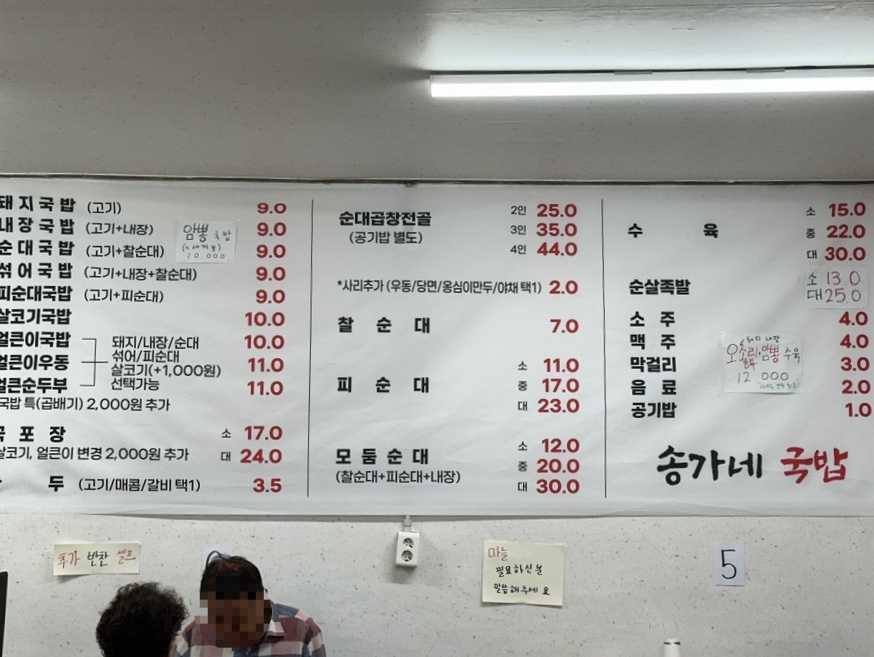 돼지국밥 (고기) 9.0
내장국밥 (고기+내장) 9.0
순대국밥 (고기+찰순대) 9.0
섞어국밥 (고기+내장+찰순대) 9.0
피순대국밥 (고기+피순대) 9.0
살코기국밥 10.0
얼큰이국밥 10.0
얼큰이우동 11.0
얼큰순두부 11.0
돼지/내장/순대
섞어/피순대
살코기(+1,000원)
선택가능
국밥 특(곱배기) 2,000원 추가
포장 소 17.0
살코기, 얼큰이 변경 2,000원 추가 대 24.0
두 (고기/매콤/갈비 택1) 3.5
암뽕 국밥
10 000
순대곱창전골 2인 25.0
(공기밥 별도) 3인 35.0
4인 44.0
*사리추가 (우동/당면/옹심이만두/야채 택1) 2.0
찰순대 7.0
소 11.0
피순대 중 17.0
대 23.0
모둠순대 소 12.0
(찰순대+피순대+내장) 중 20.0
대 30.0
소 15.0
수육 중 22.0
대 30.0
순살족발 소 13.0
대 25.0
소주 4.0
맥주 4.0
막걸리 3.0
음료 2.0
공기밥 1.0
오소리+암뽕 수육
12 000
송가네 국밥
추가 반찬 셀프
마늘
필요하신분
말씀해주세요
5